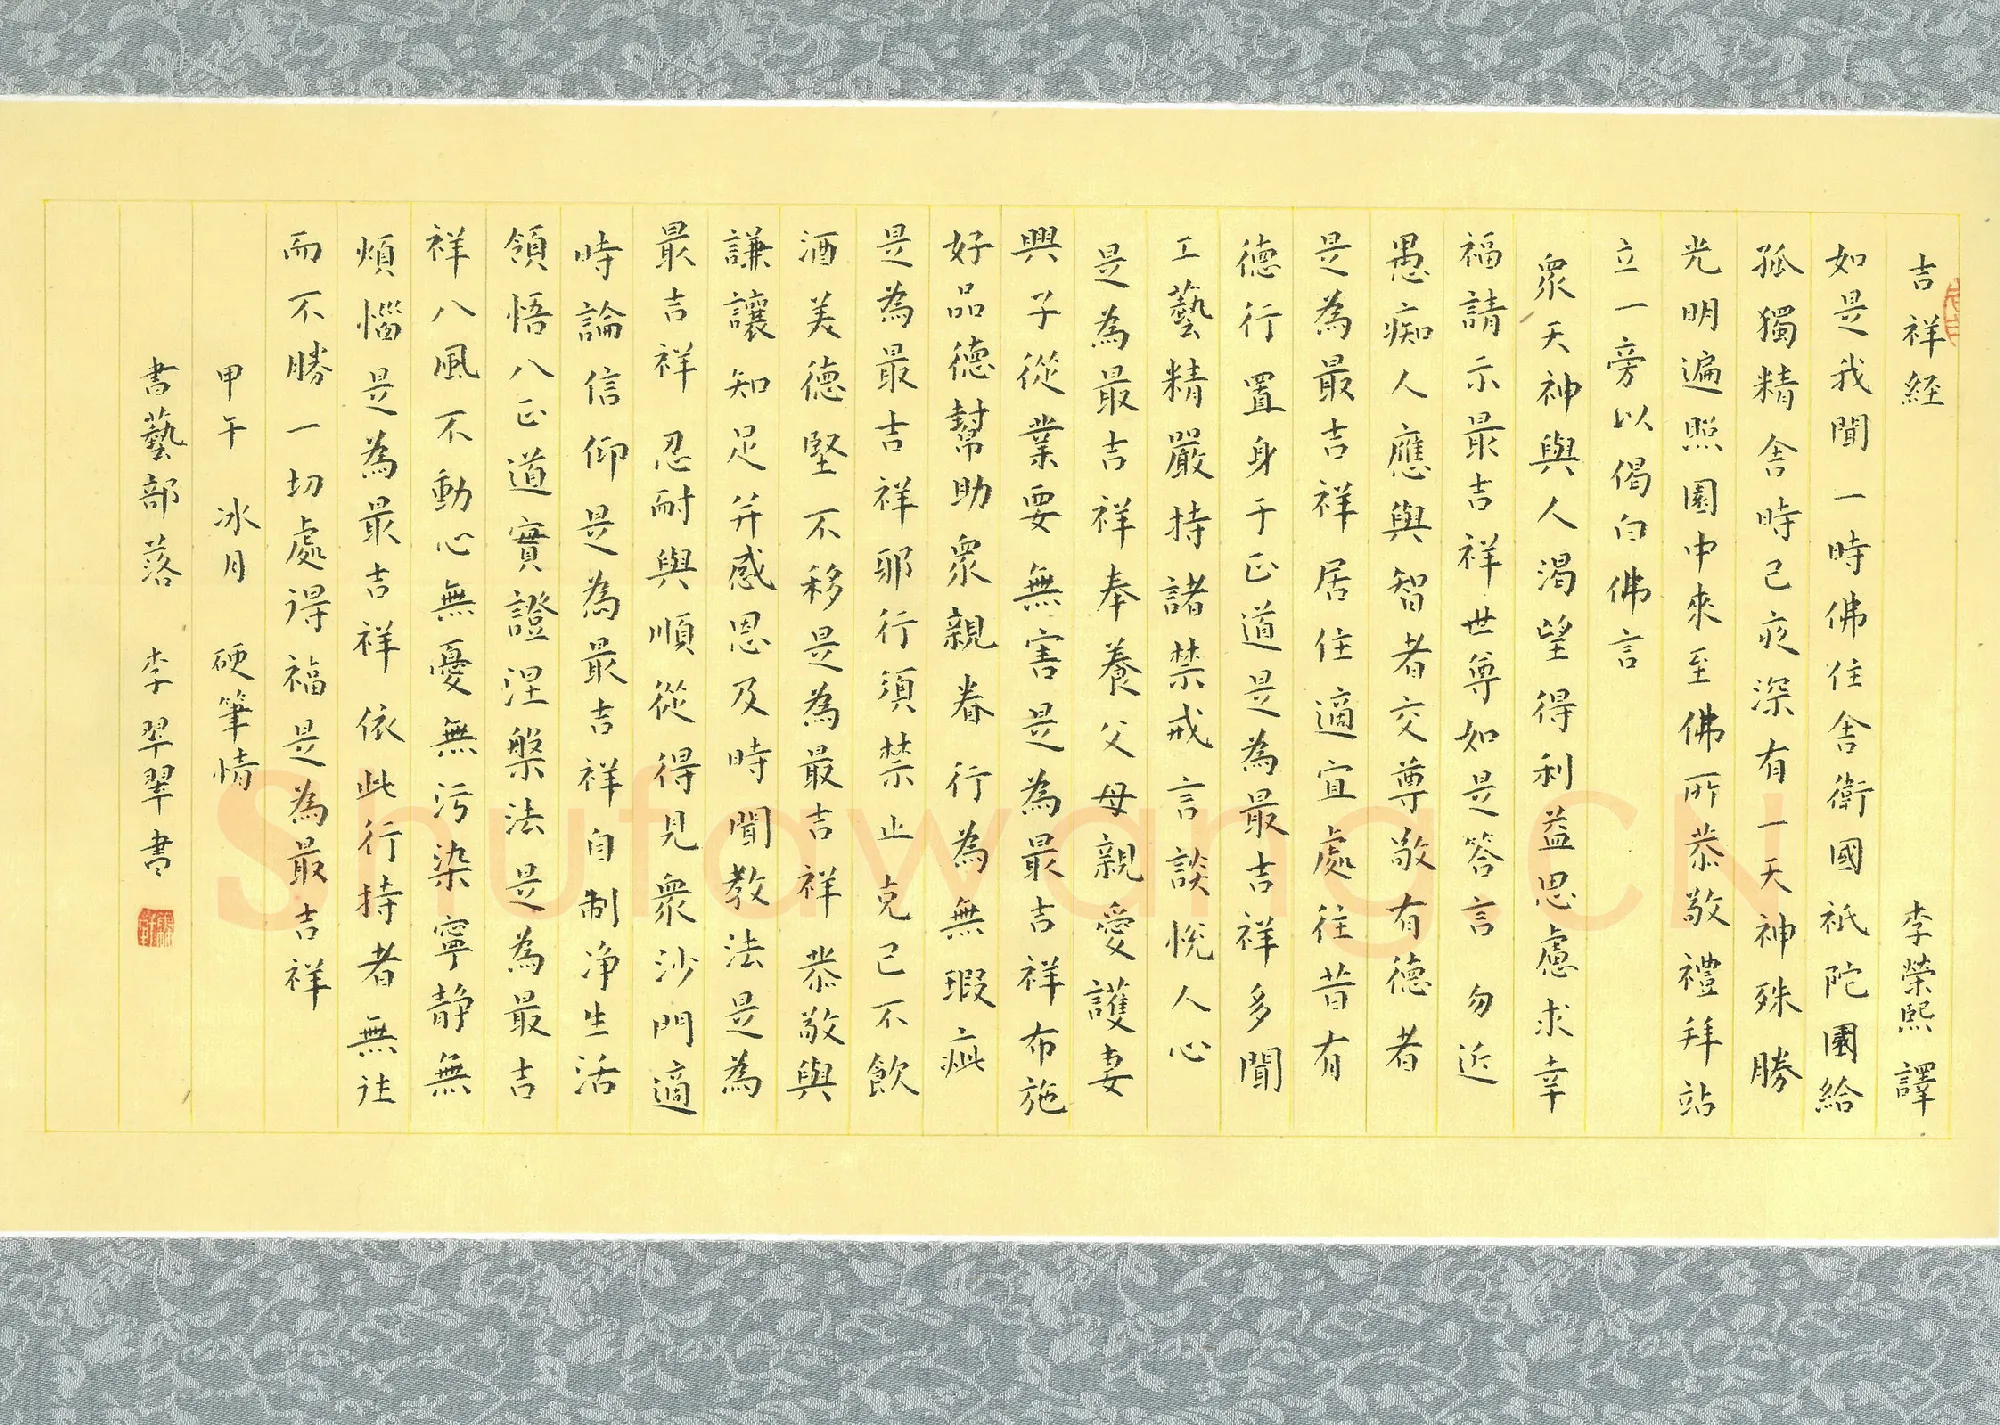 吉祥経 李榮熙譯
如是我聞一時佛住舍衛國祇陀園給
孤獨精舍時已夜深有一天神殊勝
光明遍照園中來至佛所恭敬禮拜站
立一旁以偈白佛言
眾天神與人渴望得利益思慮求幸
福請示最吉祥世尊如是答言勿近
愚痴人應與智者交尊敬有德者
是為最吉祥居住適宜處往昔有
德行置身于正道是為最吉祥多聞
工藝精嚴持諸禁戒言談悅人心
是為最吉祥奉養父母親愛護妻
與子從業要無害是為最吉祥布施
好品德幫助眾親眷行為無瑕疵
是為最吉祥邪行須禁止克己不飲
酒美德堅不移是為最吉祥恭敬與
謙讓知足并感恩及時聞教法是為
最吉祥忍耐與順從得見眾沙門適
時論信仰是為最吉祥自制净生活
領悟八正道實證涅槃法是為最吉
祥八風不動心無憂無污染寧静無
煩惱是為最吉祥依此行持者無往
而不勝一切處得福是為最吉祥
甲午 冰月 硬筆情
書藝部落 李翠翠書
Shufawang.CN